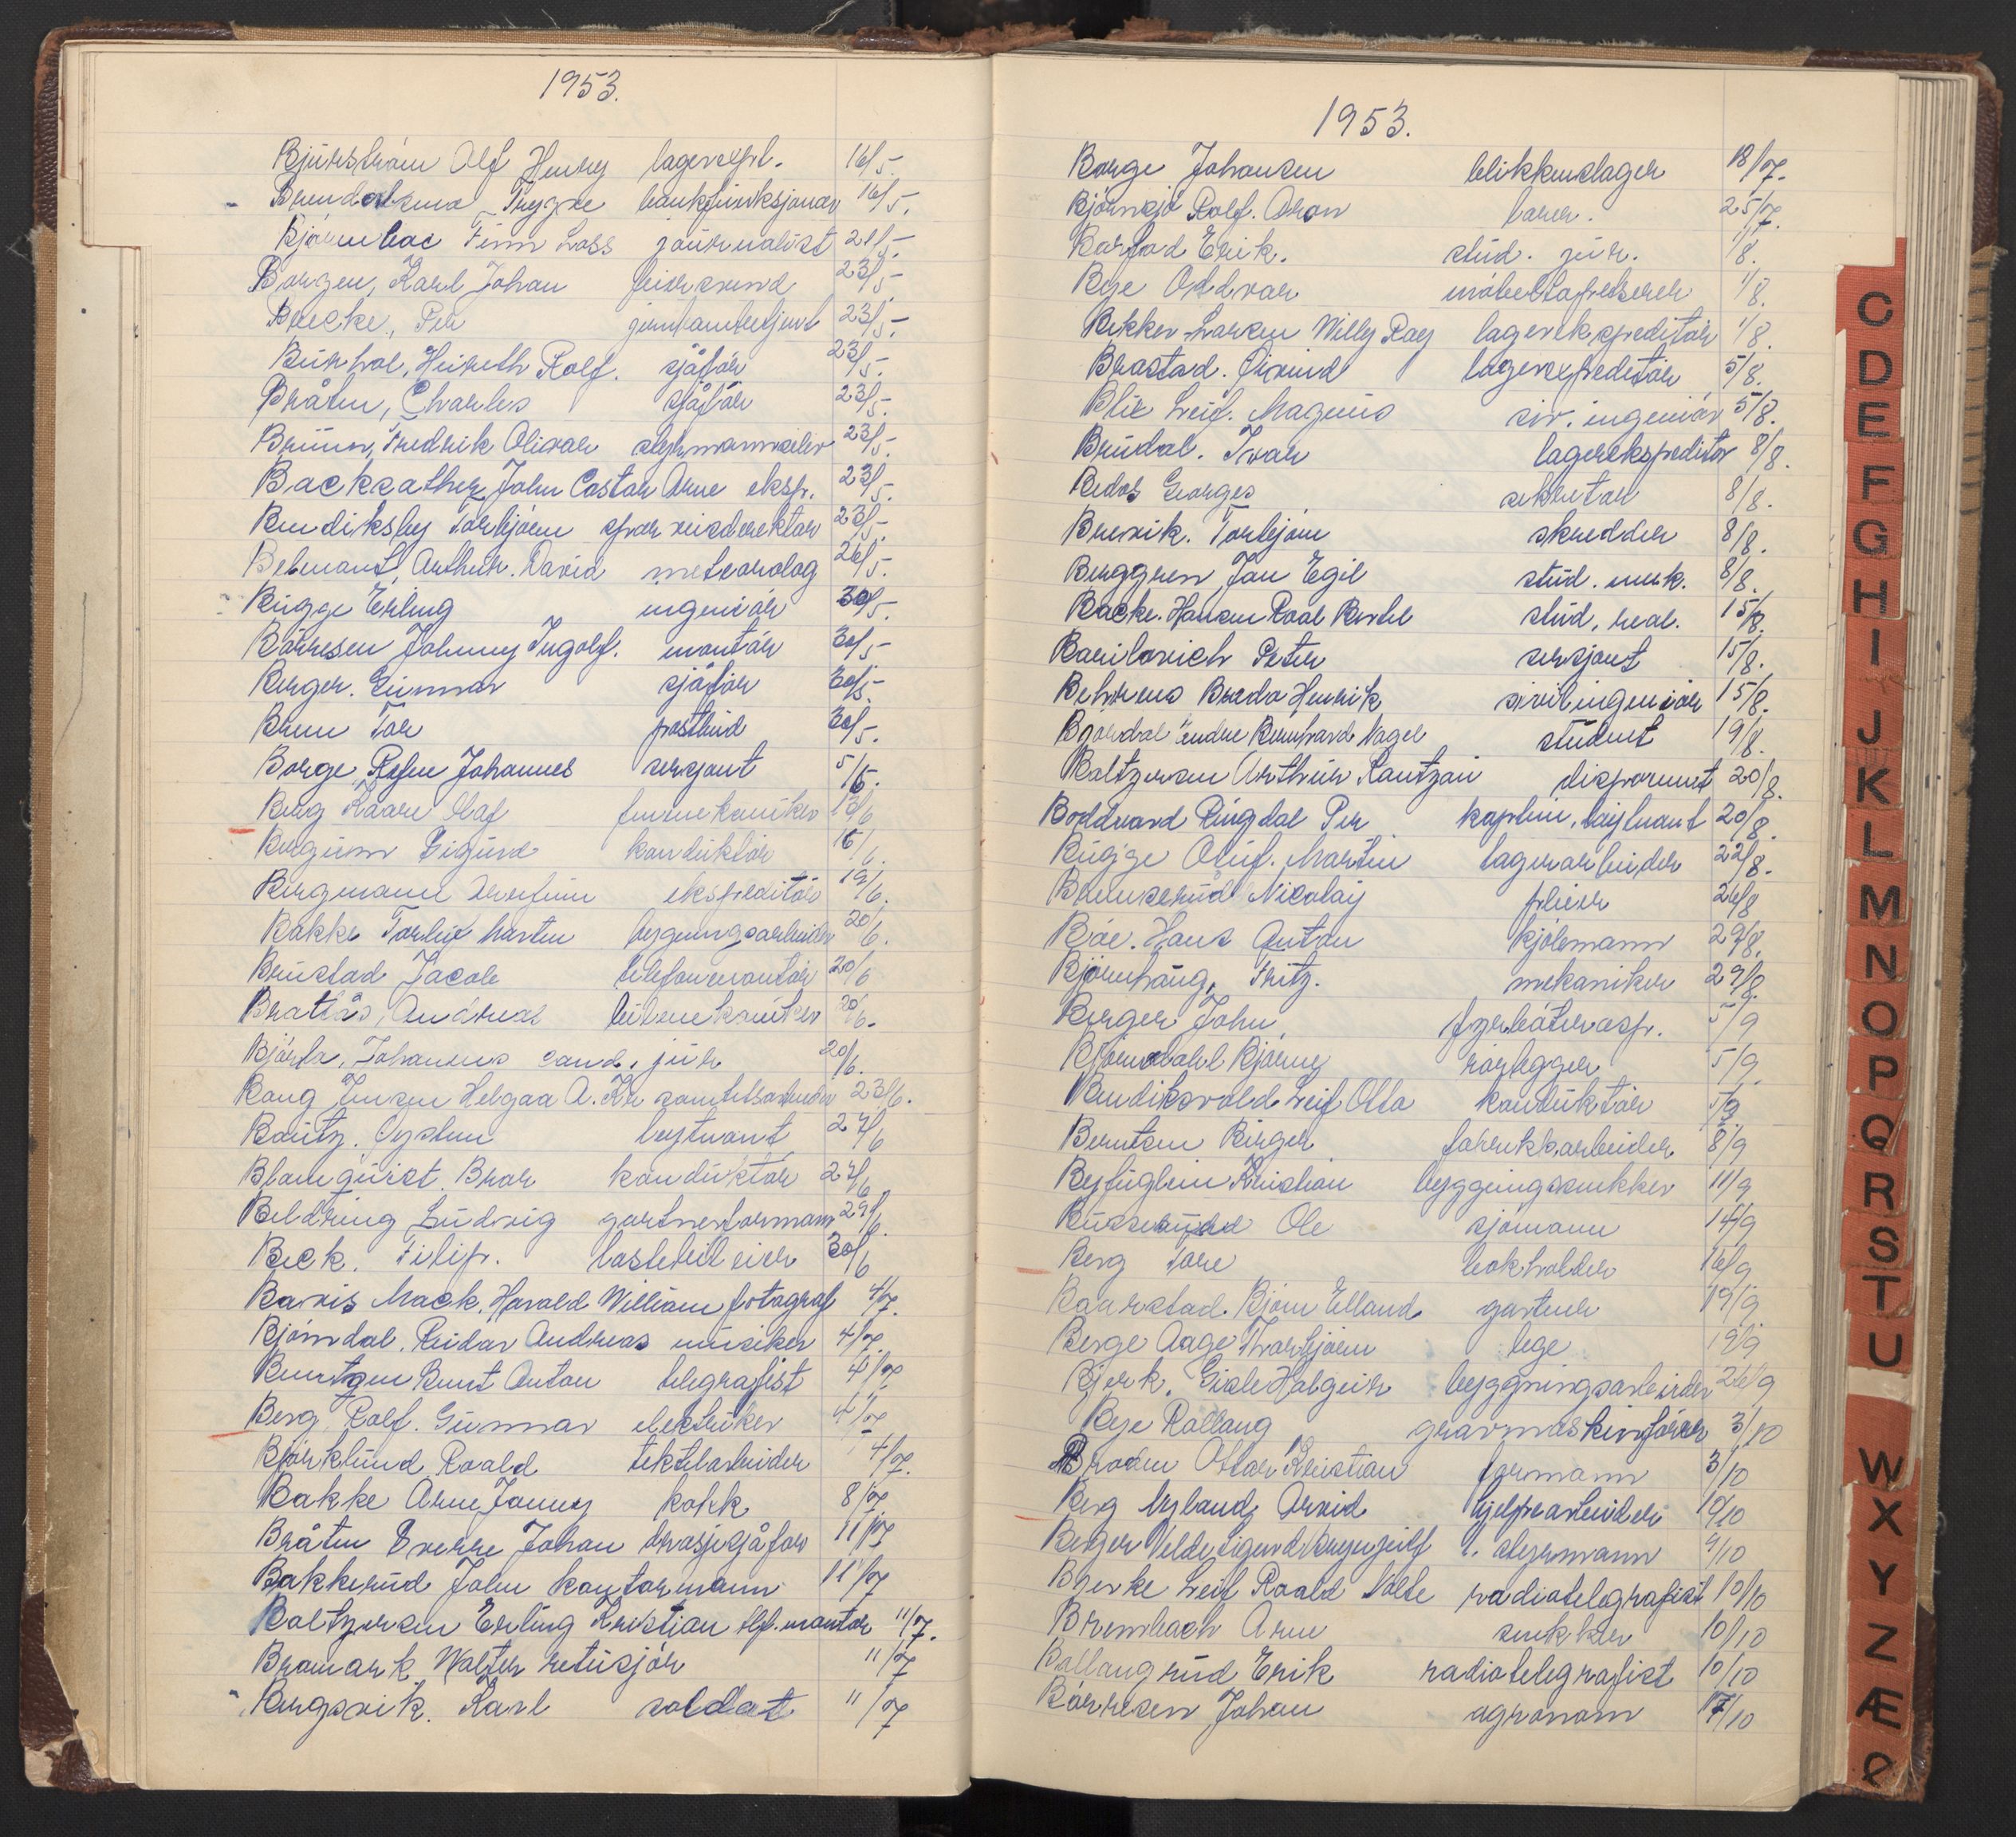 1953.
Bjurström Alf Henry lagereksp. 16/5.
Trygve bankfunksjonær 16/5.
Finn Loss journalist 21/5.
Borgen, Karl Johan feiersvend 23/5.
Brecke, Per jernbanebetjent 23/5.
Rolf. sjåfør 23/5.
Bråten, Charles sjåfør 23/5.
Bruun, Fredrik Olivar styrmannselev 23/5.
John Castor Arne eksp. 23/5.
Bendiksby Torbjörn sporveisdirektör 23/5.
Belmont, Arthur. David meteorolog 26/5.
Bugge Erling ingeniör 30/5.
Börresen Johnny Ingolf. montör 30/5.
Berger. Gunnar sjåför 30/5.
Brun Tor postbud 30/5.
Borge Johannes sersjant 5/6.
Berg Kaare Olaf finmekaniker 13/6
Bergum Sigurd konduktör 16/6.
Bergmann Arnfinn ekspeditör 19/6.
Bakke Torleif Martin bygningsarbeider 20/6.
Brustad Jacob telefonmontör 20/6
Bratlås, Andreas bilmekaniker 20/6.
Johannes cand. jur 20/6.
Bang Jensen Helgaa A. Kr 23/6.
Bautz. Øystein løytnant 27/6
Blomquist. Bror konduktör 27/6
Beldring Ludvig gartnerformann 29/6
Beck. Filip. lastebileier 30/6
Mack. Harald William fotograf 4/7.
Björndal. Reidar Andreas musiker 4/7.
Berntzen Bernt Anton telegrafist 4/7.
Berg, Rolf. Gunnar elektriker 4/7.
Björklund Roald tekstilarbeider 4/7.
Bakke Arne Jonny kokk 8/7.
Bråten Sverre Johan drosjesjåför 11/7
Bakkerud John kontormann 11/7
Baltzersen Erling Kristian tlf. montör 11/7.
Bromark Walter retusjör 11/7
Bergsvik. Karl soldat 11/7
1953.
Borge Johansen blikkenslager 18/7.
Björnsjö Rolf. Aron lærer. 25/7.
Barfod Erik. stud. jur. 1/8.
Bye Oddvar möbeltapetserer 1/8.
Bekker-Larsen Willy Ray lagerekspeditör 1/8.
Brastad. Øivind lagerekspeditör 5/8.
Blix Leif. Magnus siv. ingeniör 5/8.
Brudal. Ivar lagerekspeditör 8/8.
Bedos Georges sekretær 8/8.
Brevik. Torbjörn skredder 8/8.
Berggren Jan Egil stud. merk. 8/8.
Backe-Hansen Roal Bertel stud. real. 15/8.
Barilovich Peter sersjant 15/8.
Behrens Breda Henrik sivilingeniör 15/8.
Björdal Endre Bernhard Nagel student 19/8.
Baltzersen Arthur Rantzau disponent 20/8.
Boddvard Ringdal Per kaptein, löytnant 20/8.
Bugge Oluf. Martin lagerarbeider 22/8.
Nicolay pleier 26/8
Böe. Hans Anton kjölemann 29/8.
Björnhaug, Fritz. mekaniker 29/8.
Berger John, fyrböterasp. 5/9
Björndahl Bjarne rörlegger 5/9
Bendiksvold Leif Otto konduktör 5/9.
Berntsen Birger fabrikkarbeider 8/9
Byfuglien Kristian bygningssnekker 11/9
Ole sjömann 14/9
Berg Tore bokholder 16/9
Baarstad. Björn Elland gartner 19/9
Berge Aage Thorbjörn lege 19/9
Bjerk. Gisle Holgeir byggningsarbeider 26/9
Bye Rollaug gravmaskinförer 3/10
Broden Ottar Kristian formann 3/10
Berg Nyland Arvid hjelpearbeider 10/10
Berger Velde Sigurd 1. styrmann 9/10
Bjerke Leif Roald Nolte radiotelegrafist 10/10
Brembach Arne snekker 10/10
Ballangrud Erik radiotelegrafist 10/10
Börresen Johan agronom 17/10
C
D
E
F
G
H
I
J
K
L
M
N
O
P
Q
R
S
T
U
W
X
Y
Z
Æ
Ø